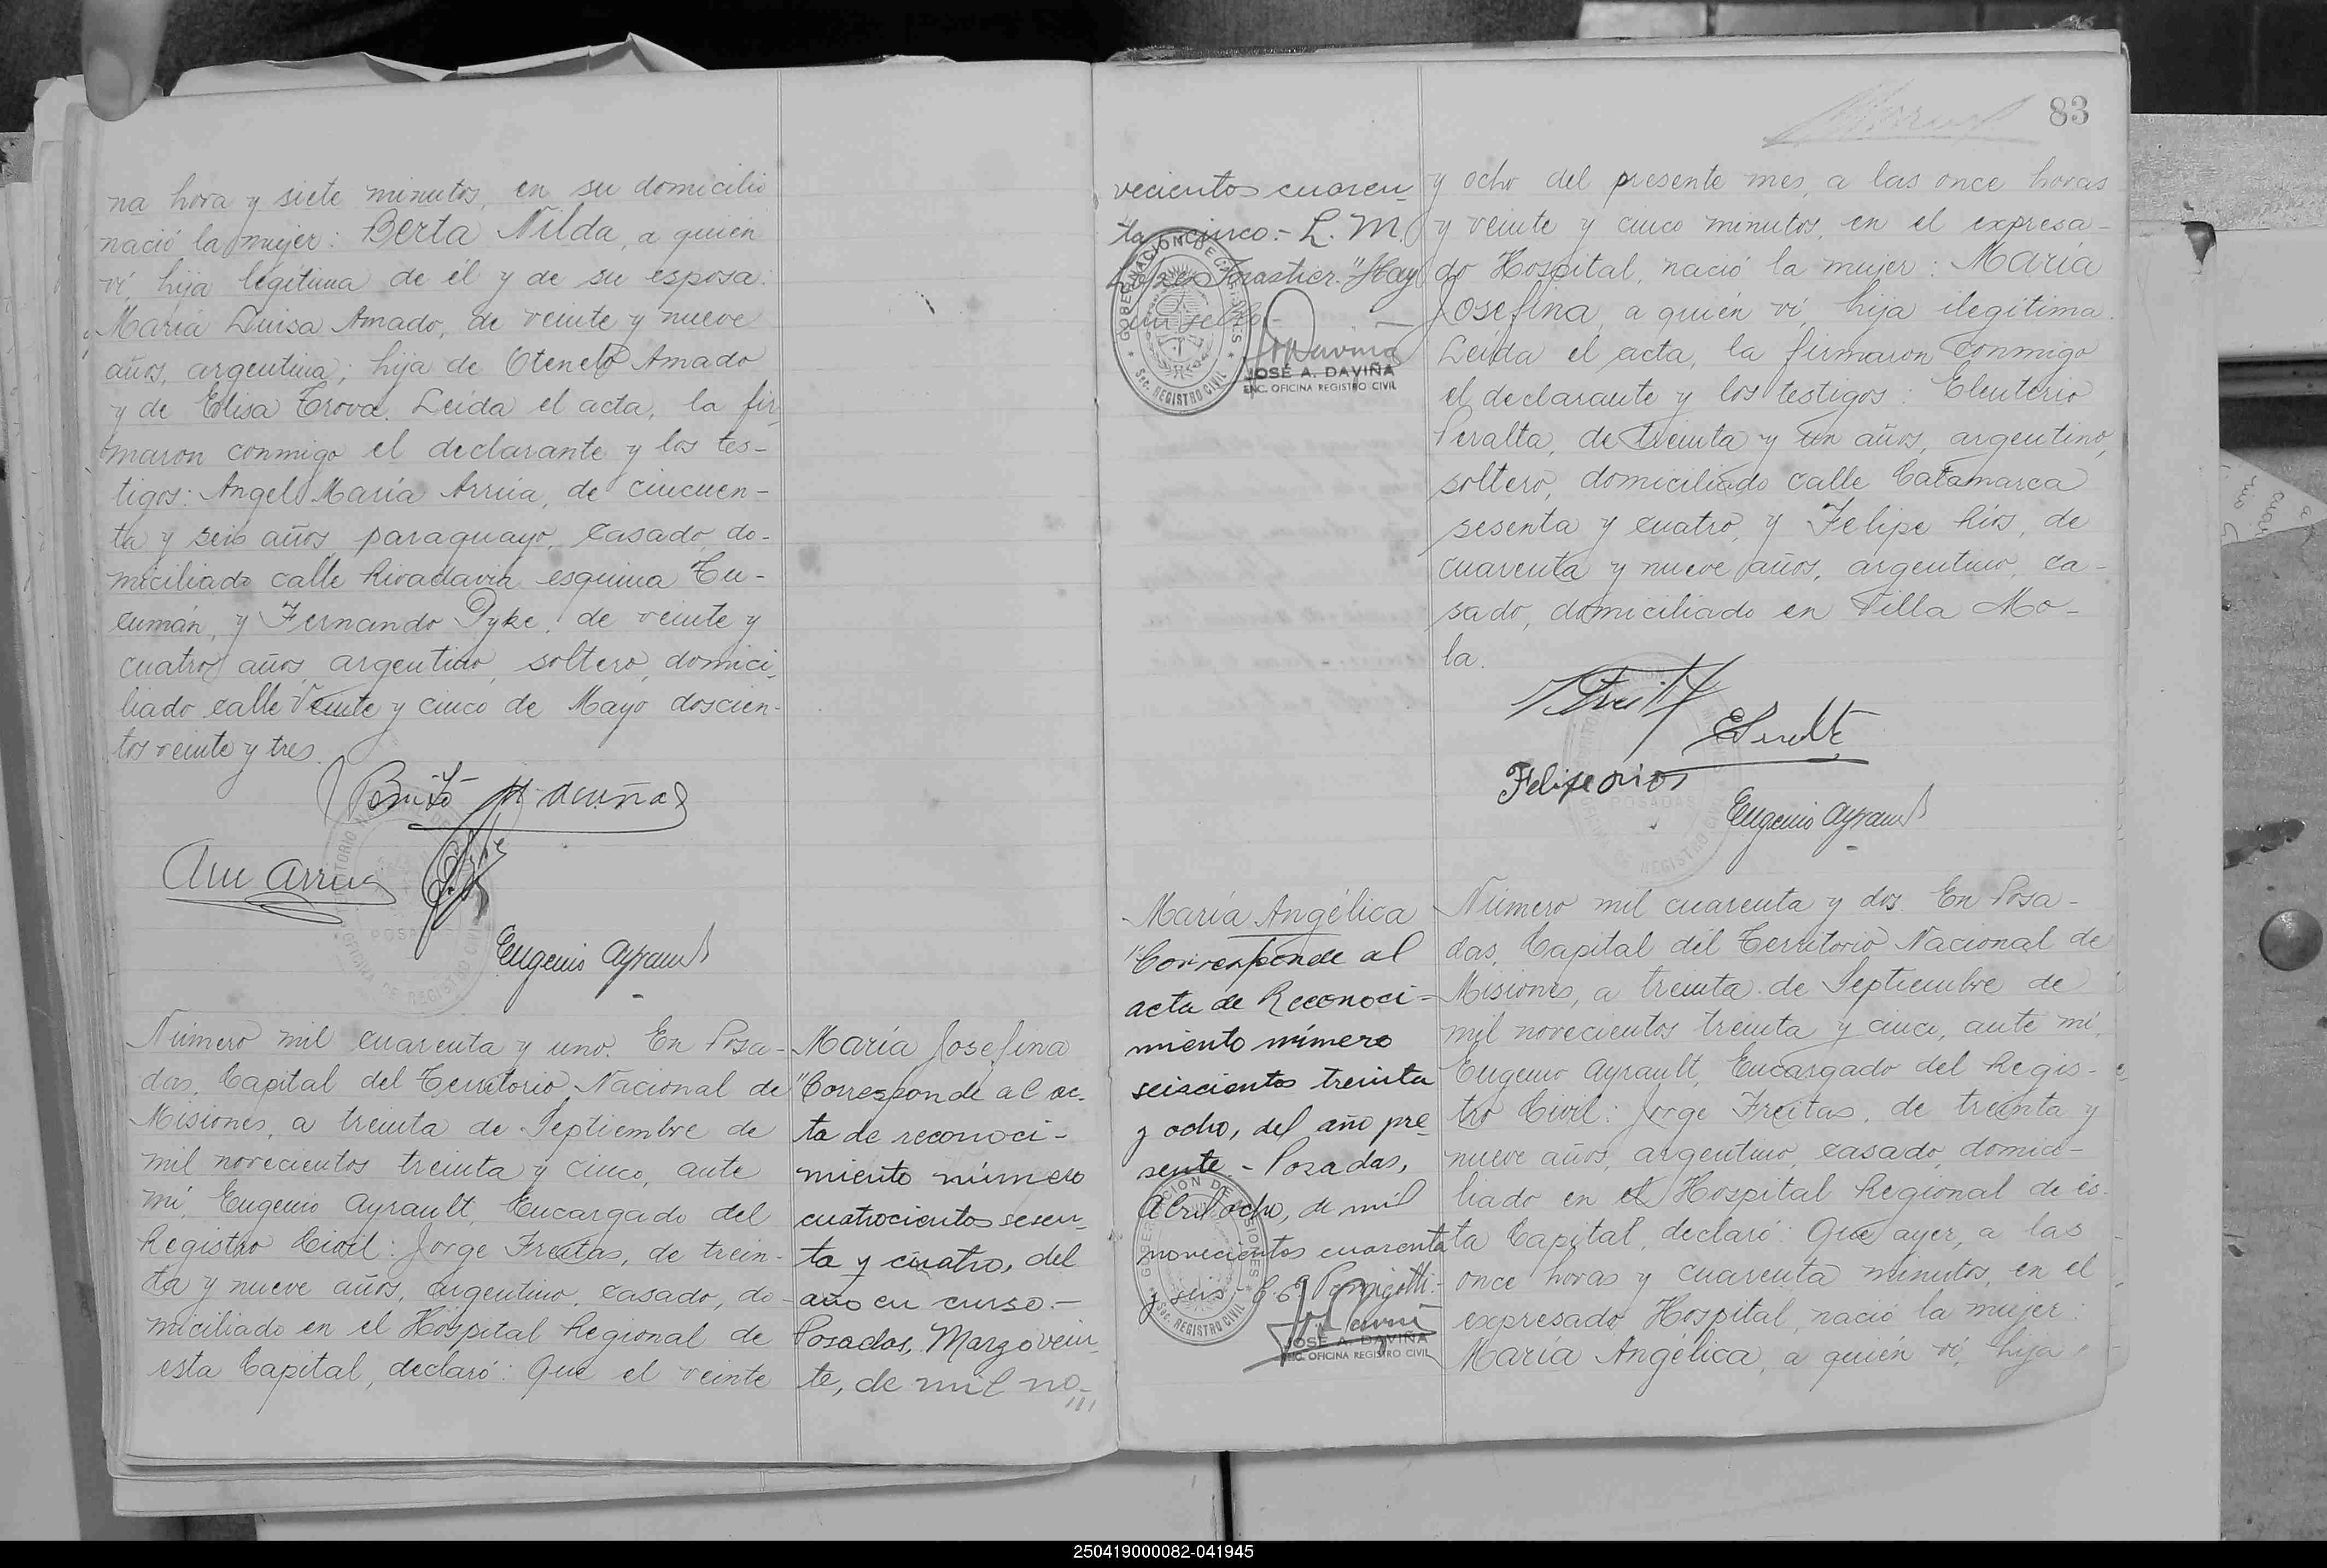 na hora y siete minutos, en su domicilio
nació la mujer: Berta Nilda, a quién
ví, hija legítima de él y de su esposa:
María Luisa Amado, de veinte y nueve
años, argentina; hija de Otenelo Amado
y de Elisa Trova. Leída el acta, la fir-
maron conmigo el declarante y los tes-
tigos: Angel María Arrúa, de cincuen-
ta y seis años, paraguayo, casado, do-
miciliado calle Rivadavia esquina Tu-
cumán, y Fernando Dyke, de veinte y
cuatro años, argentino, soltero, domici-
liado calle Veinte y cinco de Mayo doscien-
tos veinte y tres.
Benito Acuña
Arrua
Eugenio Ayrault
Número mil cuarenta y uno. En Posa-
das, Capital del Territorio Nacional de
Misiones, a treinta de Septiembre de
mil novecientos treinta y cinco, ante
mí, Eugenio Ayrault, Encargado del
Registro Civil: Jorge Freitas, de trein-
ta y nueve años, argentino, casado, do-
miciliado en el Hospital Regional de
esta Capital, declaró: Que el veinte
María Josefina
"Corresponde al ac-
ta de reconoci-
miento número
cuatrocientos sesen-
ta y cuatro, del
año en curso.-
Posadas, Marzo vein-
te, de mil no-
83
vecientos cuaren-
ta y cinco.- L. M.
"Hay
un sello.-
JOSÉ A. DAVIÑA
ENC. OFICINA REGISTRO CIVIL
GOBERNACION DE MISIONES
Sec. REGISTRO CIVIL
y ocho del presente mes, a las once horas
y veinte y cinco minutos, en el expresa-
do Hospital, nació la mujer: María
Josefina, a quién ví, hija ilegítima.
Leída el acta, la firmaron conmigo
el declarante y los testigos: Eleuterio
Peralta, de treinta y un años, argentino,
soltero, domiciliado calle Catamarca
sesenta y cuatro, y Felipe Ríos, de
cuarenta y nueve años, argentino, ca-
sado, domiciliado en Villa Mo-
la.
Felipe rios
Eugenio Ayrault
María Angélica
"Corresponde al
acta de Reconoci-
miento número
seiscientos treinta
y ocho, del año pre-
sente - Posadas,
Abril ocho, de mil
novecientos cuarenta
y seis
JOSÉ A. DAVIÑA
ENC. OFICINA REGISTRO CIVIL
GOBERNACION DE MISIONES
Sec. REGISTRO CIVIL
Número mil cuarenta y dos. En Posa-
das, Capital del Territorio Nacional de
Misiones, a treinta de Septiembre de
mil novecientos treinta y cinco, ante mí,
Eugenio Ayrault, Encargado del Regis-
tro Civil: Jorge Freitas, de treinta y
nueve años, argentino, casado, domici-
liado en el Hospital Regional de és-
ta Capital, declaró: Que ayer, a las
once horas y cuarenta minutos, en el
expresado Hospital, nació la mujer:
María Angélica, a quién ví, hija
250419000082-041945